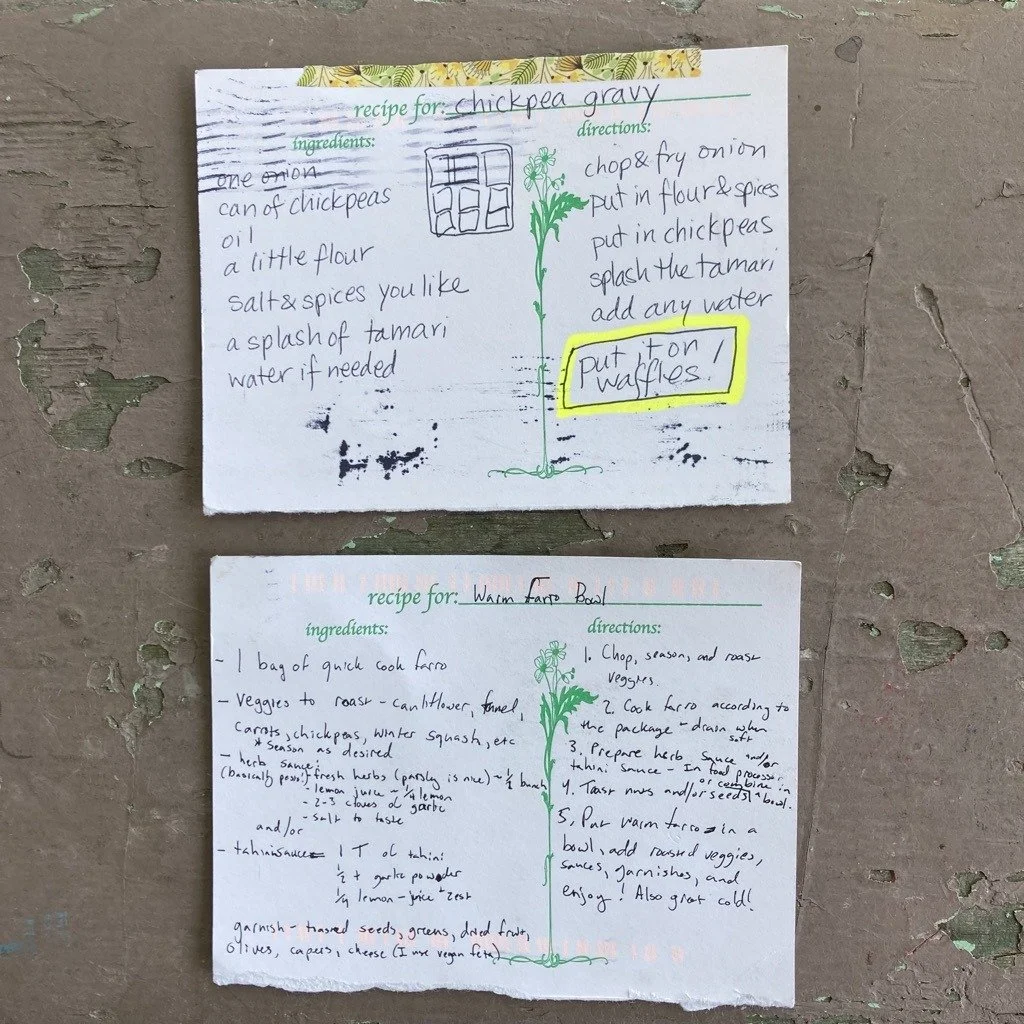 recipe for: chickpea gravy
ingredients:
one onion
can of chickpeas
oil
a little flour
salt & spices you like
a splash of tamari
water if needed
directions:
chop & fry onion
put in flour & spices
put in chickpeas
splash the tamari
add any water
put it on
waffles!
recipe for: Warm Farro Bowl
ingredients:
- 1 bag of quick cook farro
- Veggies to roast - cauliflower, fennel,
carrots, chickpeas, winter squash, etc
* season as desired
- herb sauce:
(basically pesto) - fresh herbs (parsley is nice) ~ 1/2 bunch
- lemon juice ~ 1/4 lemon
- 2-3 cloves of garlic
- salt to taste
and/or
- tahini sauce - 1 T of tahini
1/2 t garlic powder
1/4 lemon - juice + zest
garnish - toasted seeds, greens, dried fruit,
olives, capers, cheese (I use vegan feta)
directions:
1. Chop, season, and roast
veggies.
2. Cook farro according to
the package - drain when
soft
3. Prepare herb sauce and/or
tahini sauce - In food processor
or combine in
bowl.
4. Toast nuts and/or seeds
5. Put warm farro in a
bowl, add roasted veggies,
sauces, garnishes, and
enjoy! Also great cold!